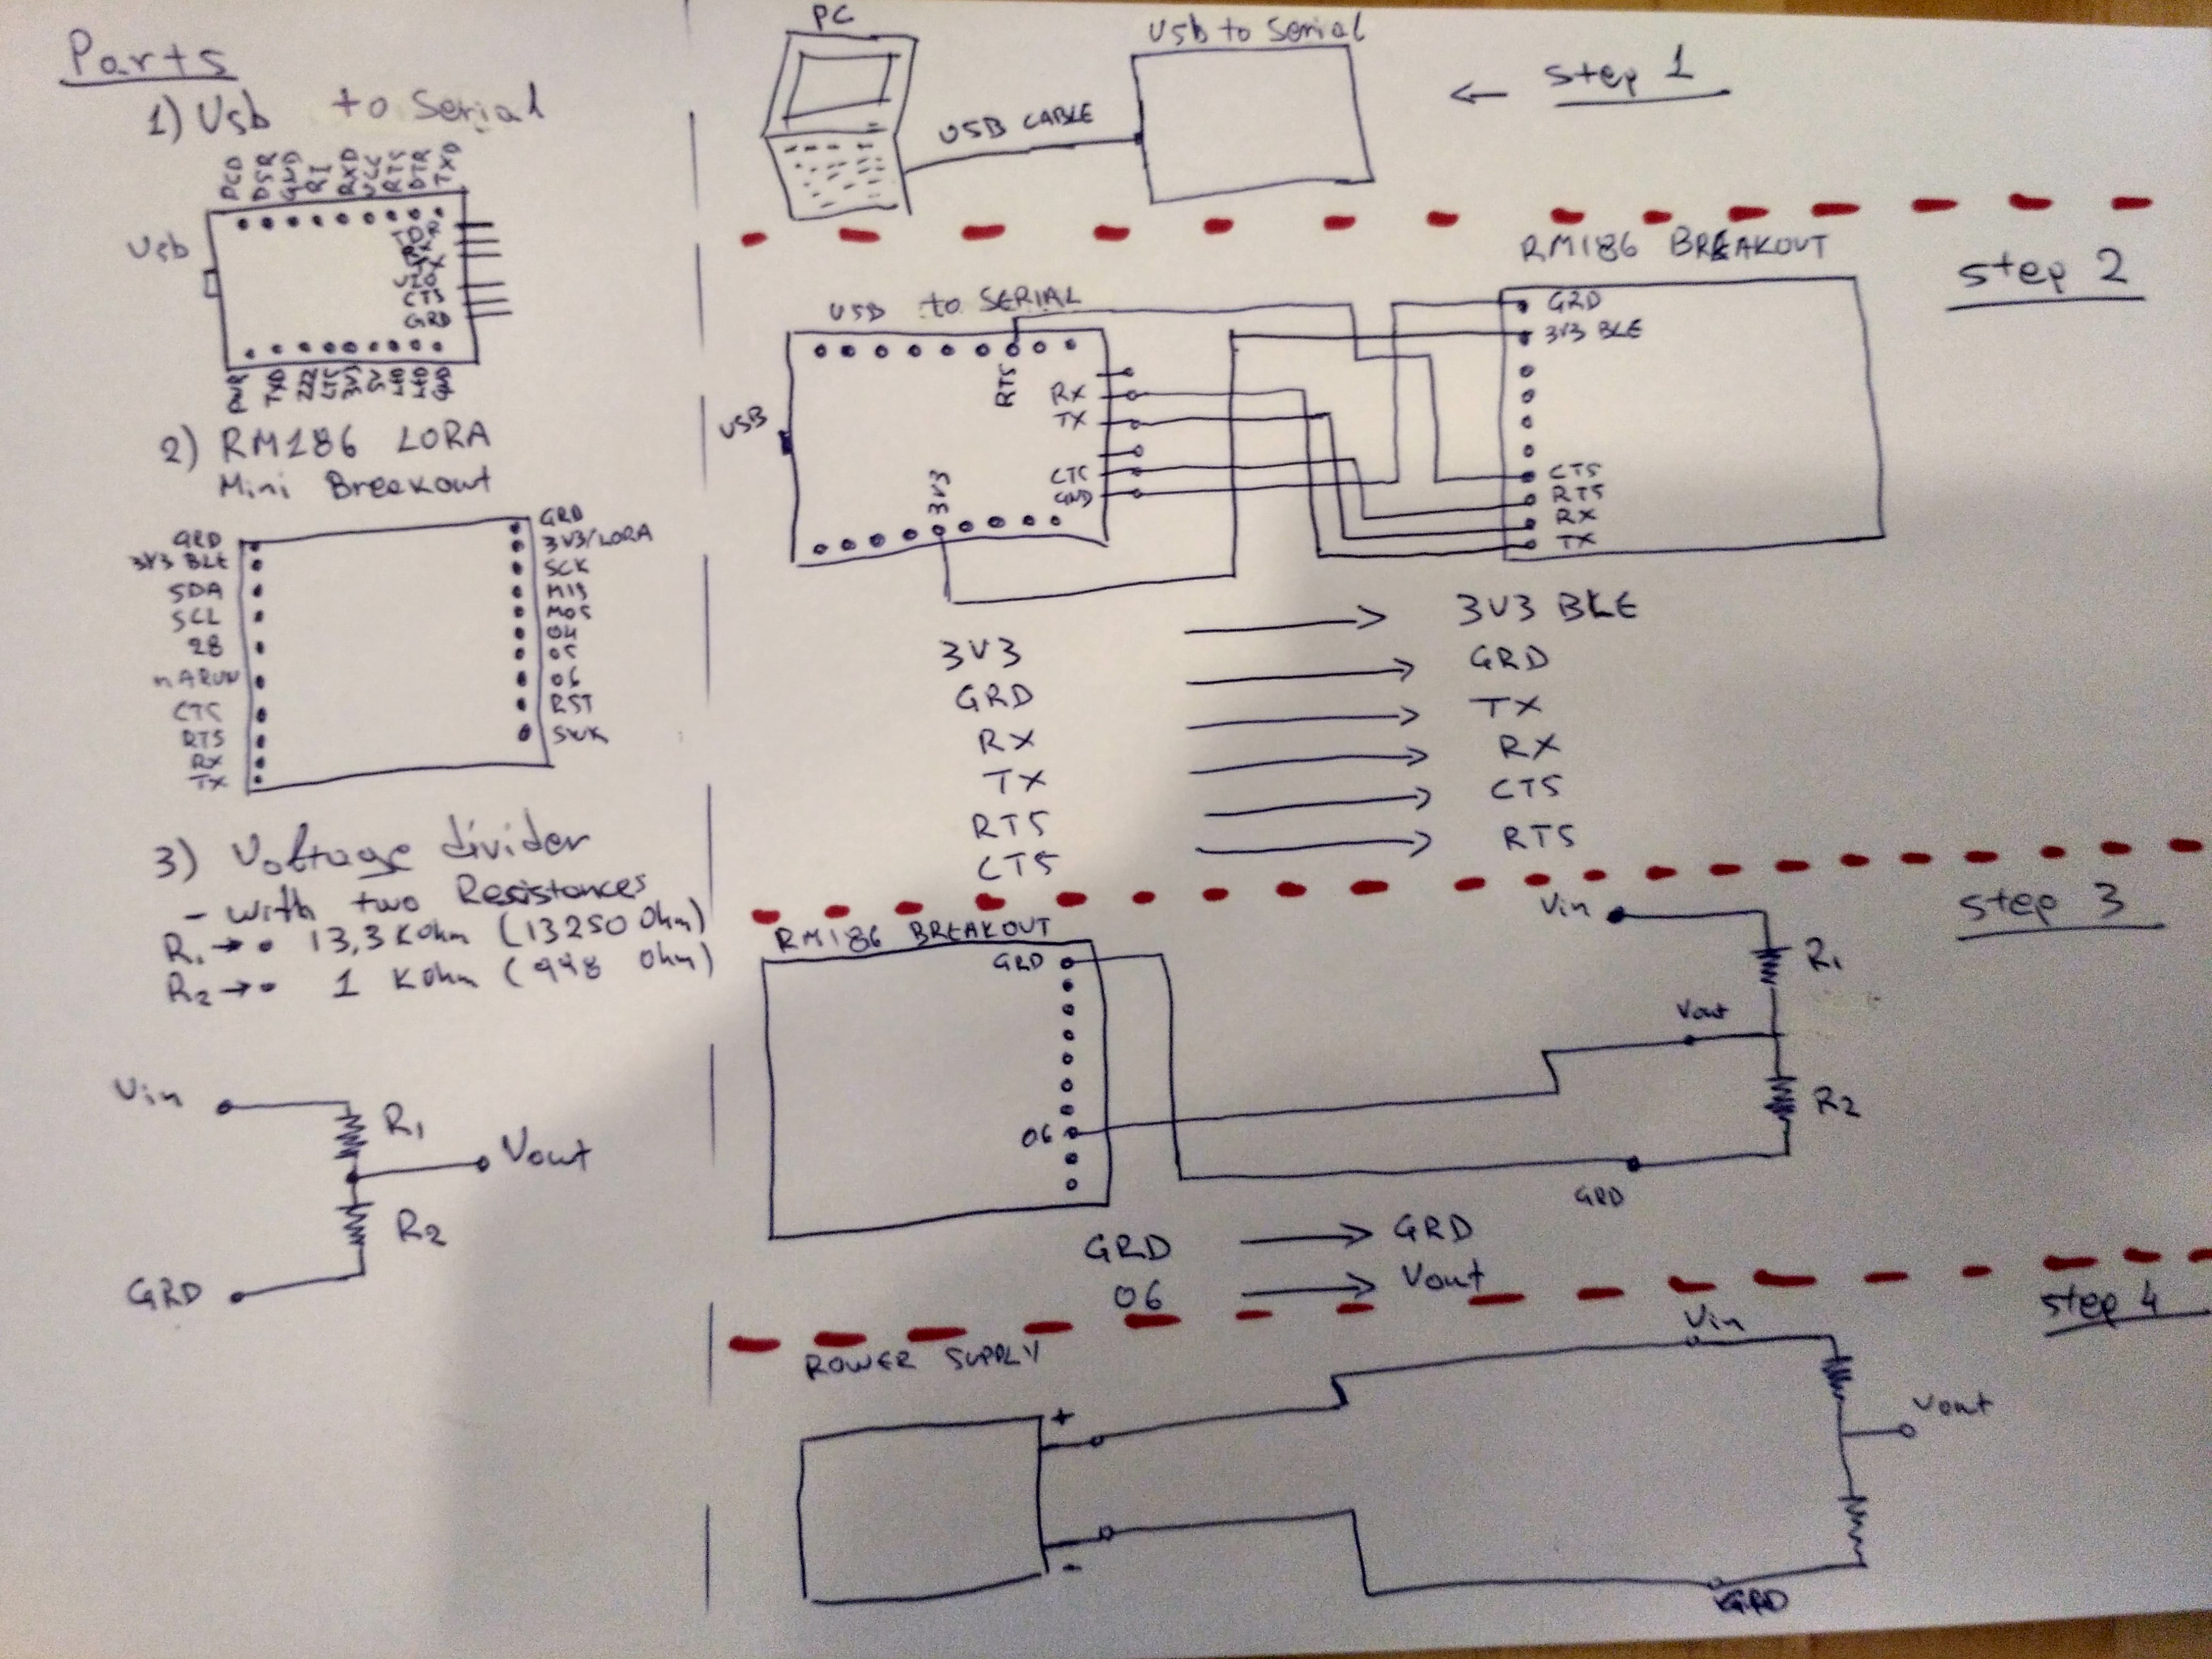 Parts
1) Usb to Serial
DCD DSR GND RI RXD VCC RTS DTR TXD
Usb
CTS
GRD
PWR TXD CTS 3V3 5V GND
2) RM186 LORA
Mini Breakout
GRD
3V3 BLE
SDA
SCL
28
nARUN
CTS
RTS
RX
TX
GRD
3V3/LORA
SCK
MIS
MOS
04
05
06
RST
3) Voltage divider
- with two Resistances
R1 → • 13,3 KOhm (13250 Ohm)
R2 → • 1 KOhm (998 Ohm)
Vin
R1
Vout
R2
GRD
PC
Usb to Serial
USB CABLE
← step 1
step 2
USB to SERIAL
RTS
RX
TX
CTS
GND
USB
3V3
RM186 BREAKOUT
GRD
3V3 BLE
CTS
RTS
RX
TX
3V3 → 3V3 BLE
GRD → GRD
RX → TX
TX → RX
RTS → CTS
CTS → RTS
step 3
RM186 BREAKOUT
GRD
06
Vin
R1
Vout
R2
GRD
GRD → GRD
06 → Vout
step 4
POWER SUPPLY
+
-
Vin
Vout
GRD